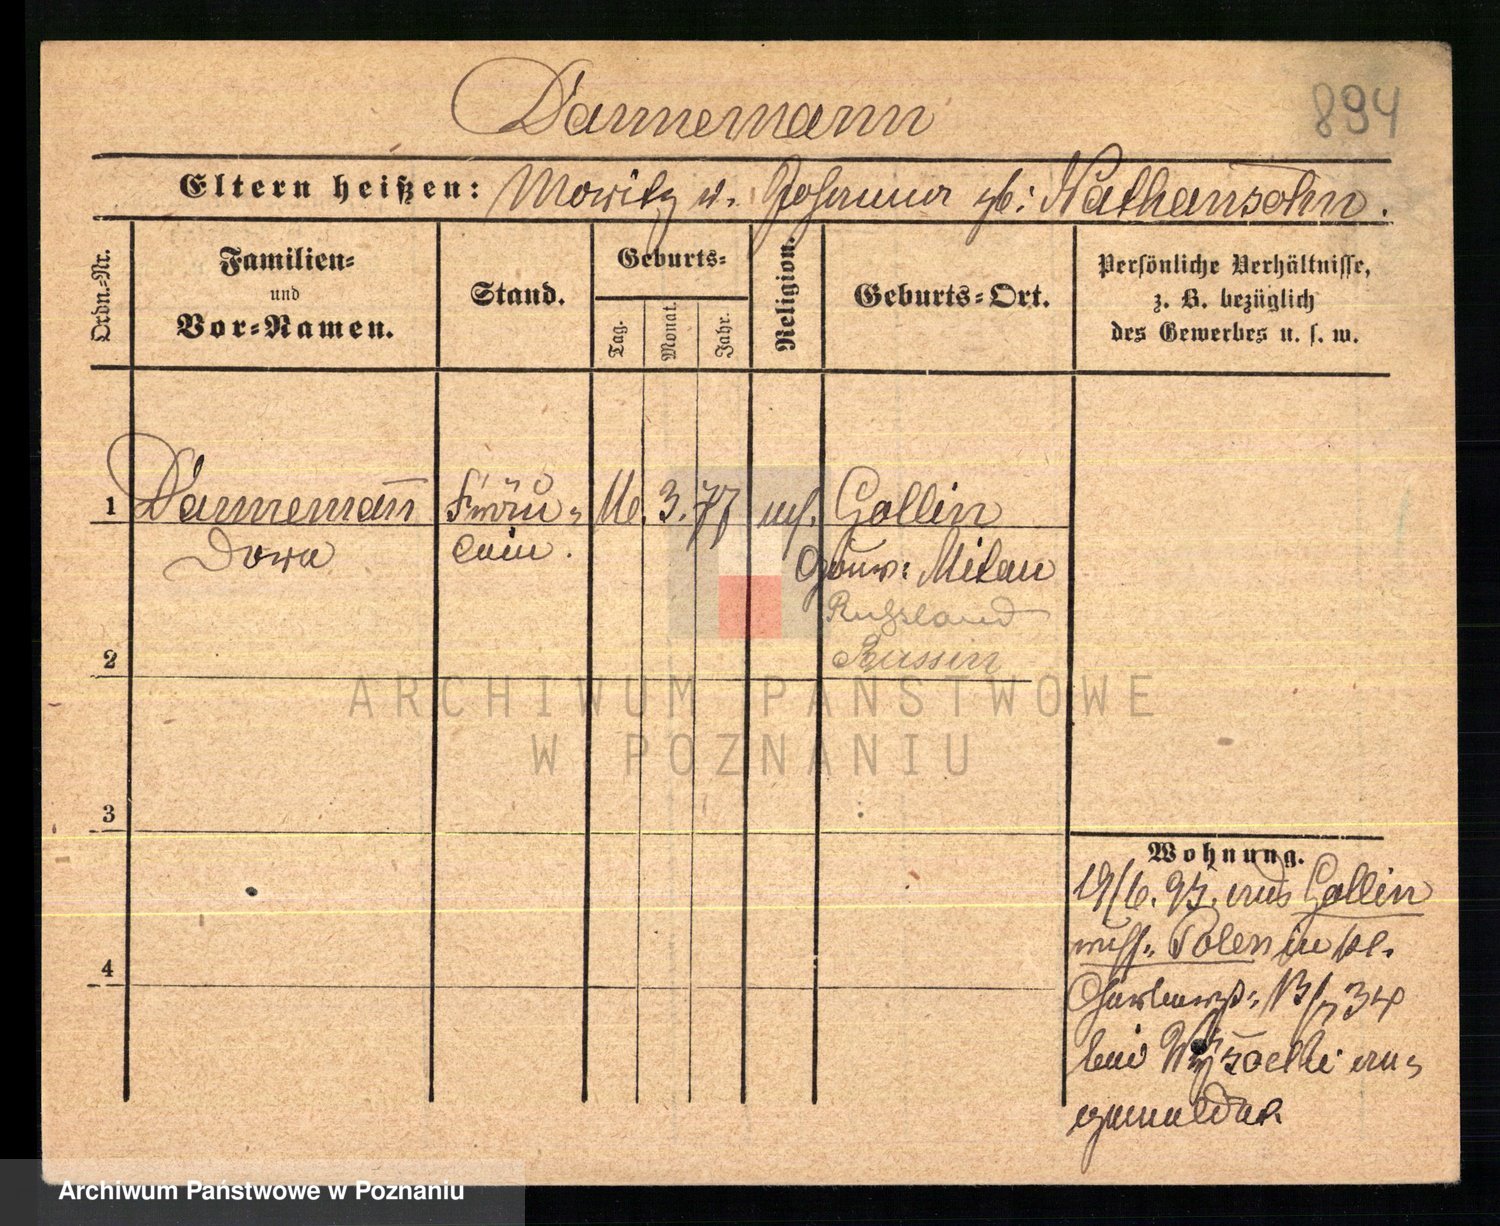 Dannemann
894
Eltern heißen: Moritz u. Johanna gb: Nathansohn.
Ordn.-Nr.
Familien-
und
Vor-Namen.
Stand.
Geburts-
Tag.
Monat.
Jahr.
Religion.
Geburts-Ort.
Persönliche Verhältnisse,
z. B. bezüglich
des Gewerbes u. s. w.
1 Dannemann Fräu- 3. 77 Gollin
Dora lein. Gouv: Mitau
Rußland
2 Russin
3
4
Wohnung.
19/6. 95. aus Gollin
russ. Polen in
34
bei an-
gemeldet.
ARCHIWUM PAŃSTWOWE
W POZNANIU
Archiwum Państwowe w Poznaniu